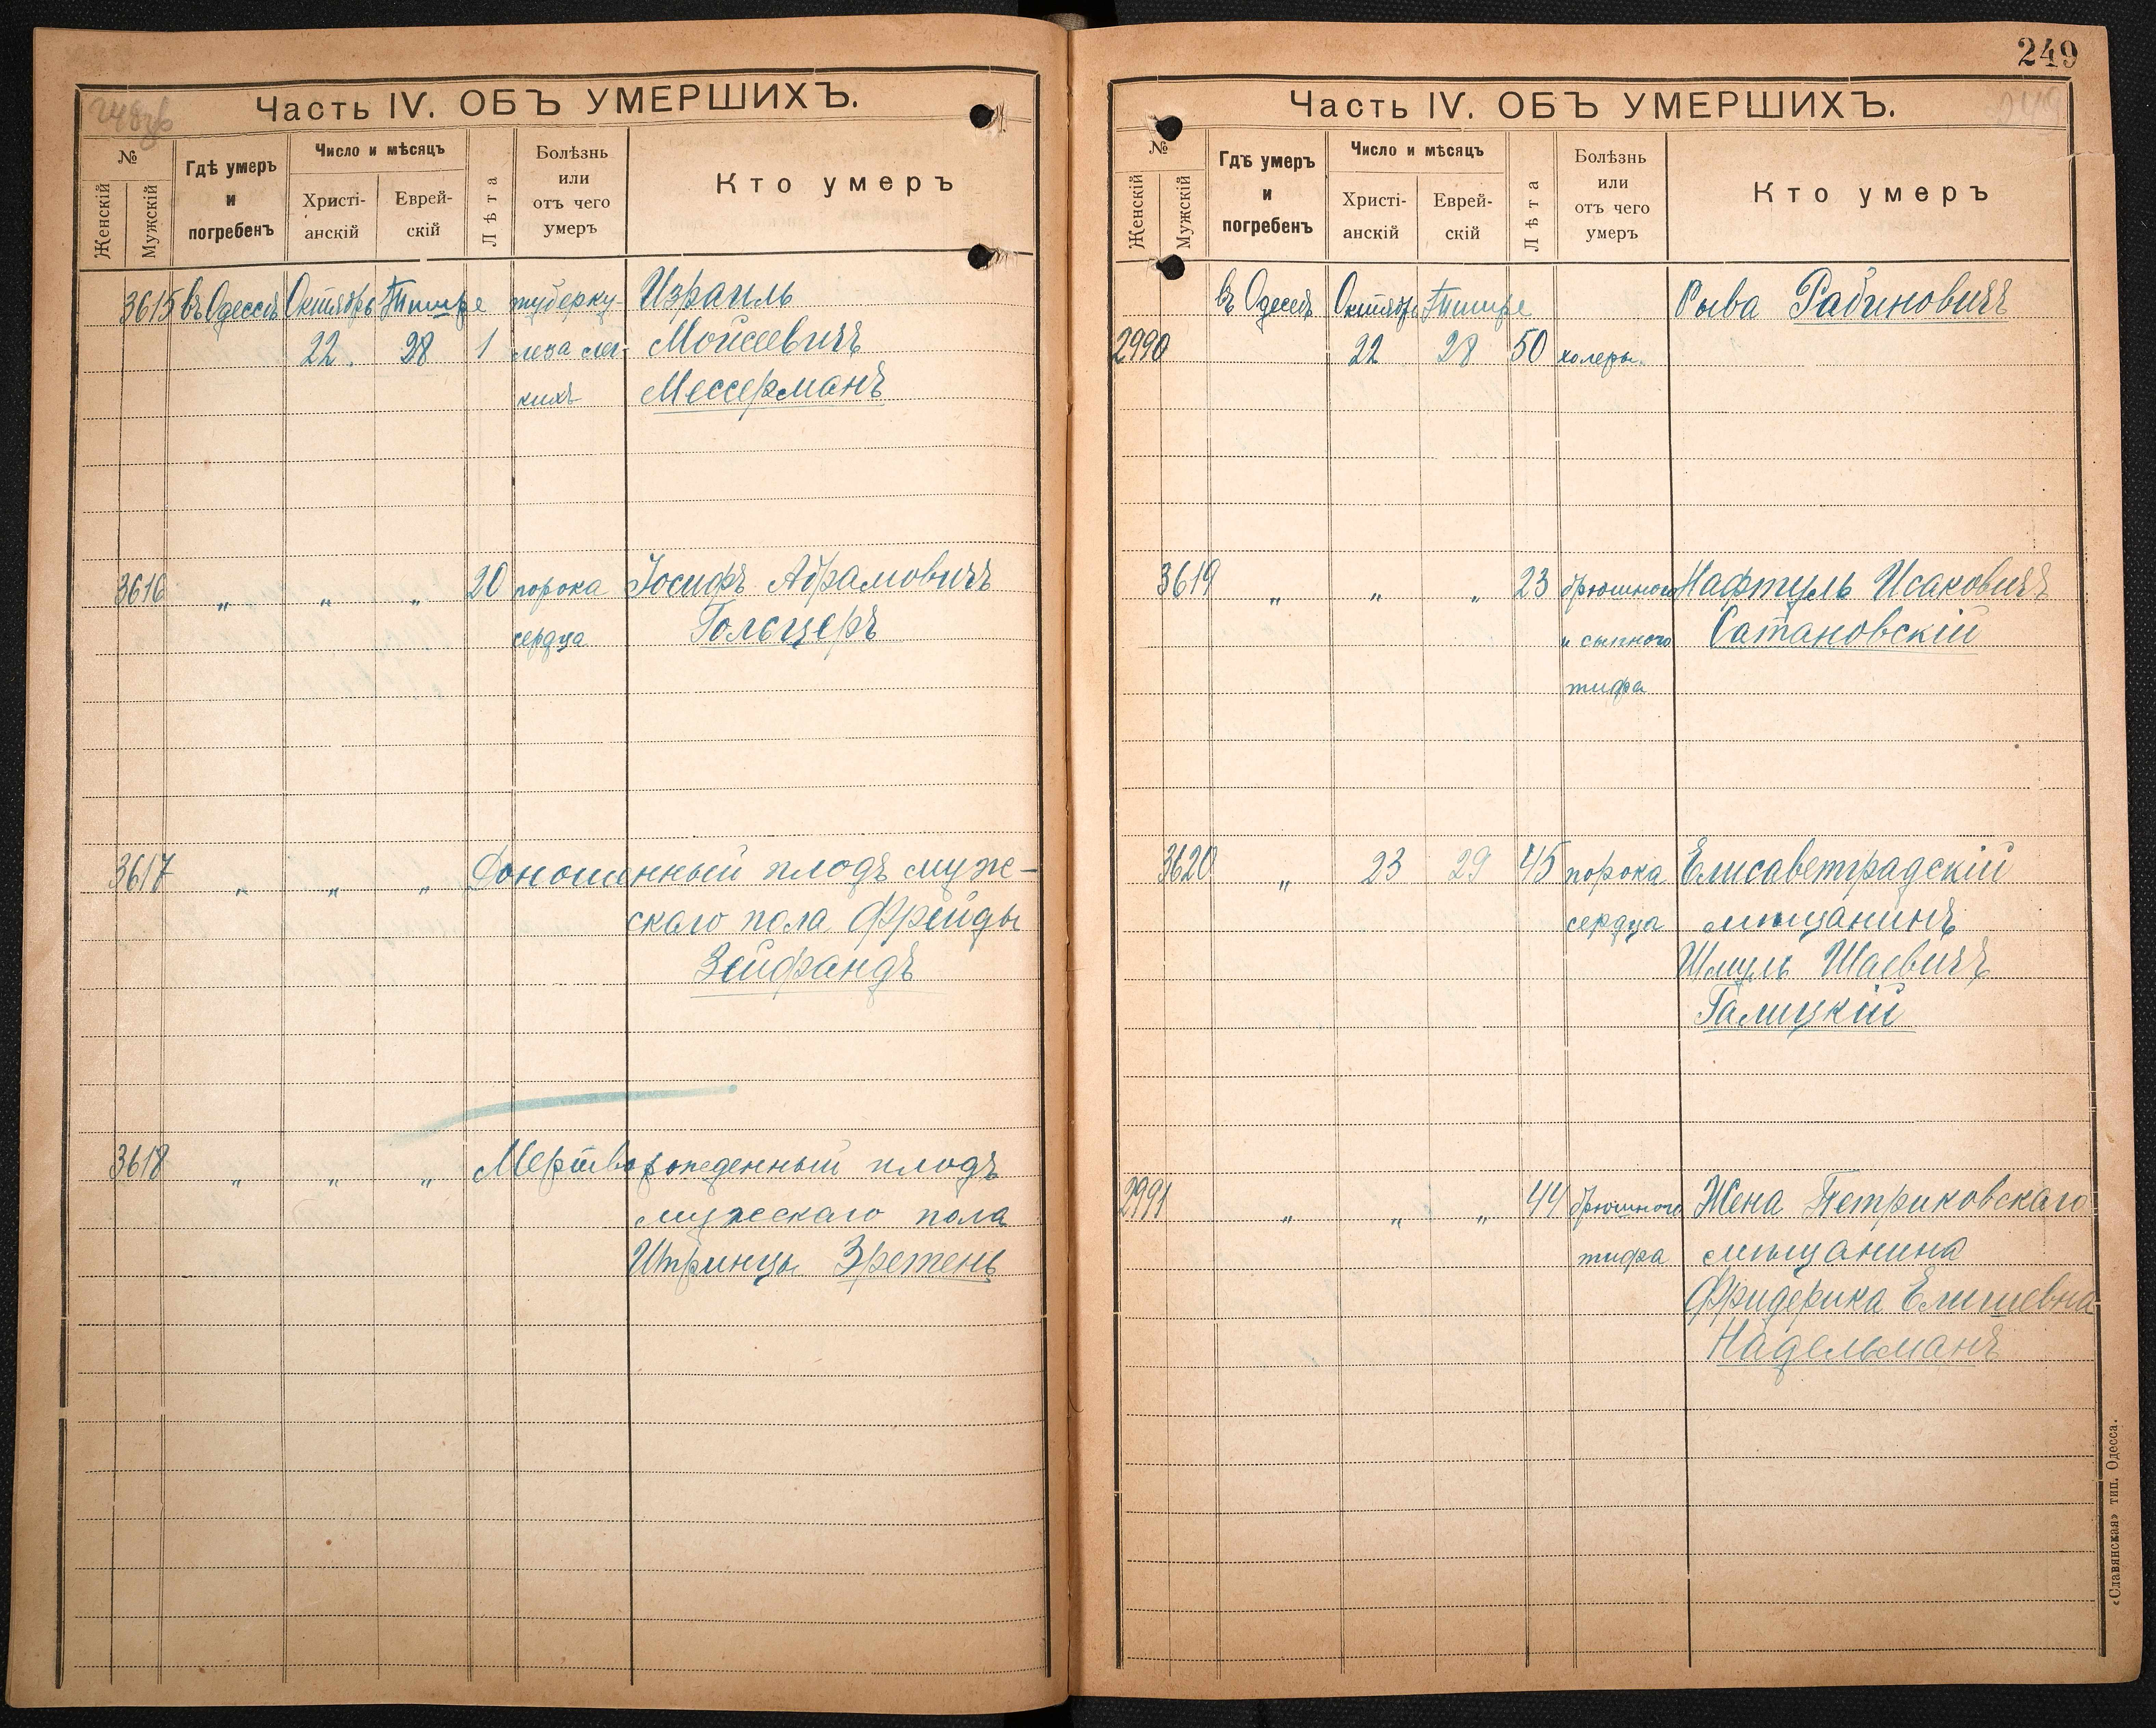 249
248зв
Часть IV. ОБЪ УМЕРШИХЪ.
№
Женскій
Мужскій
Гдѣ умеръ
и
погребенъ
Число и мѣсяцъ
Христі-
анскій
Еврей-
скій
Лѣта
Болѣзнь
или
отъ чего
умеръ
Кто умеръ
3615 въ Одессѣ Октябрь Тишре туберку- Израиль
22. 28 1 леза лег- Моисеевичъ
кихъ Мессерманъ
3616 „ „ „ 20 порока Іосифъ Абрамовичъ
сердца Гольцеръ
3617 „ „ „ Доношенный плодъ муж-
скаго пола Фрейды
Зейфандъ
3618 „ „ „ Мертворожденный плодъ
мужескаго пола
Итринцы Эретень
Часть IV. ОБЪ УМЕРШИХЪ.
249
№
Женскій
Мужскій
Гдѣ умеръ
и
погребенъ
Число и мѣсяцъ
Христі-
анскій
Еврей-
скій
Лѣта
Болѣзнь
или
отъ чего
умеръ
Кто умеръ
въ Одессѣ Октябрь Тишре Рыва Рабиновичъ
2990 22 28 50 холеры.
3619 „ „ „ 23 брюшного Нафтуль Исаковичъ
и сыпного Сатановскій
тифа
3620 „ 23 29 45 порока Елисаветградскій
сердца мѣщанинъ
Шмуль Шаевичъ
Галицкій
2991 „ „ „ 44 брюшного Жена Петриковскаго
тифа мѣщанина
Фридерика Елишевна
Надельманъ
«Славянская» тип. Одесса.